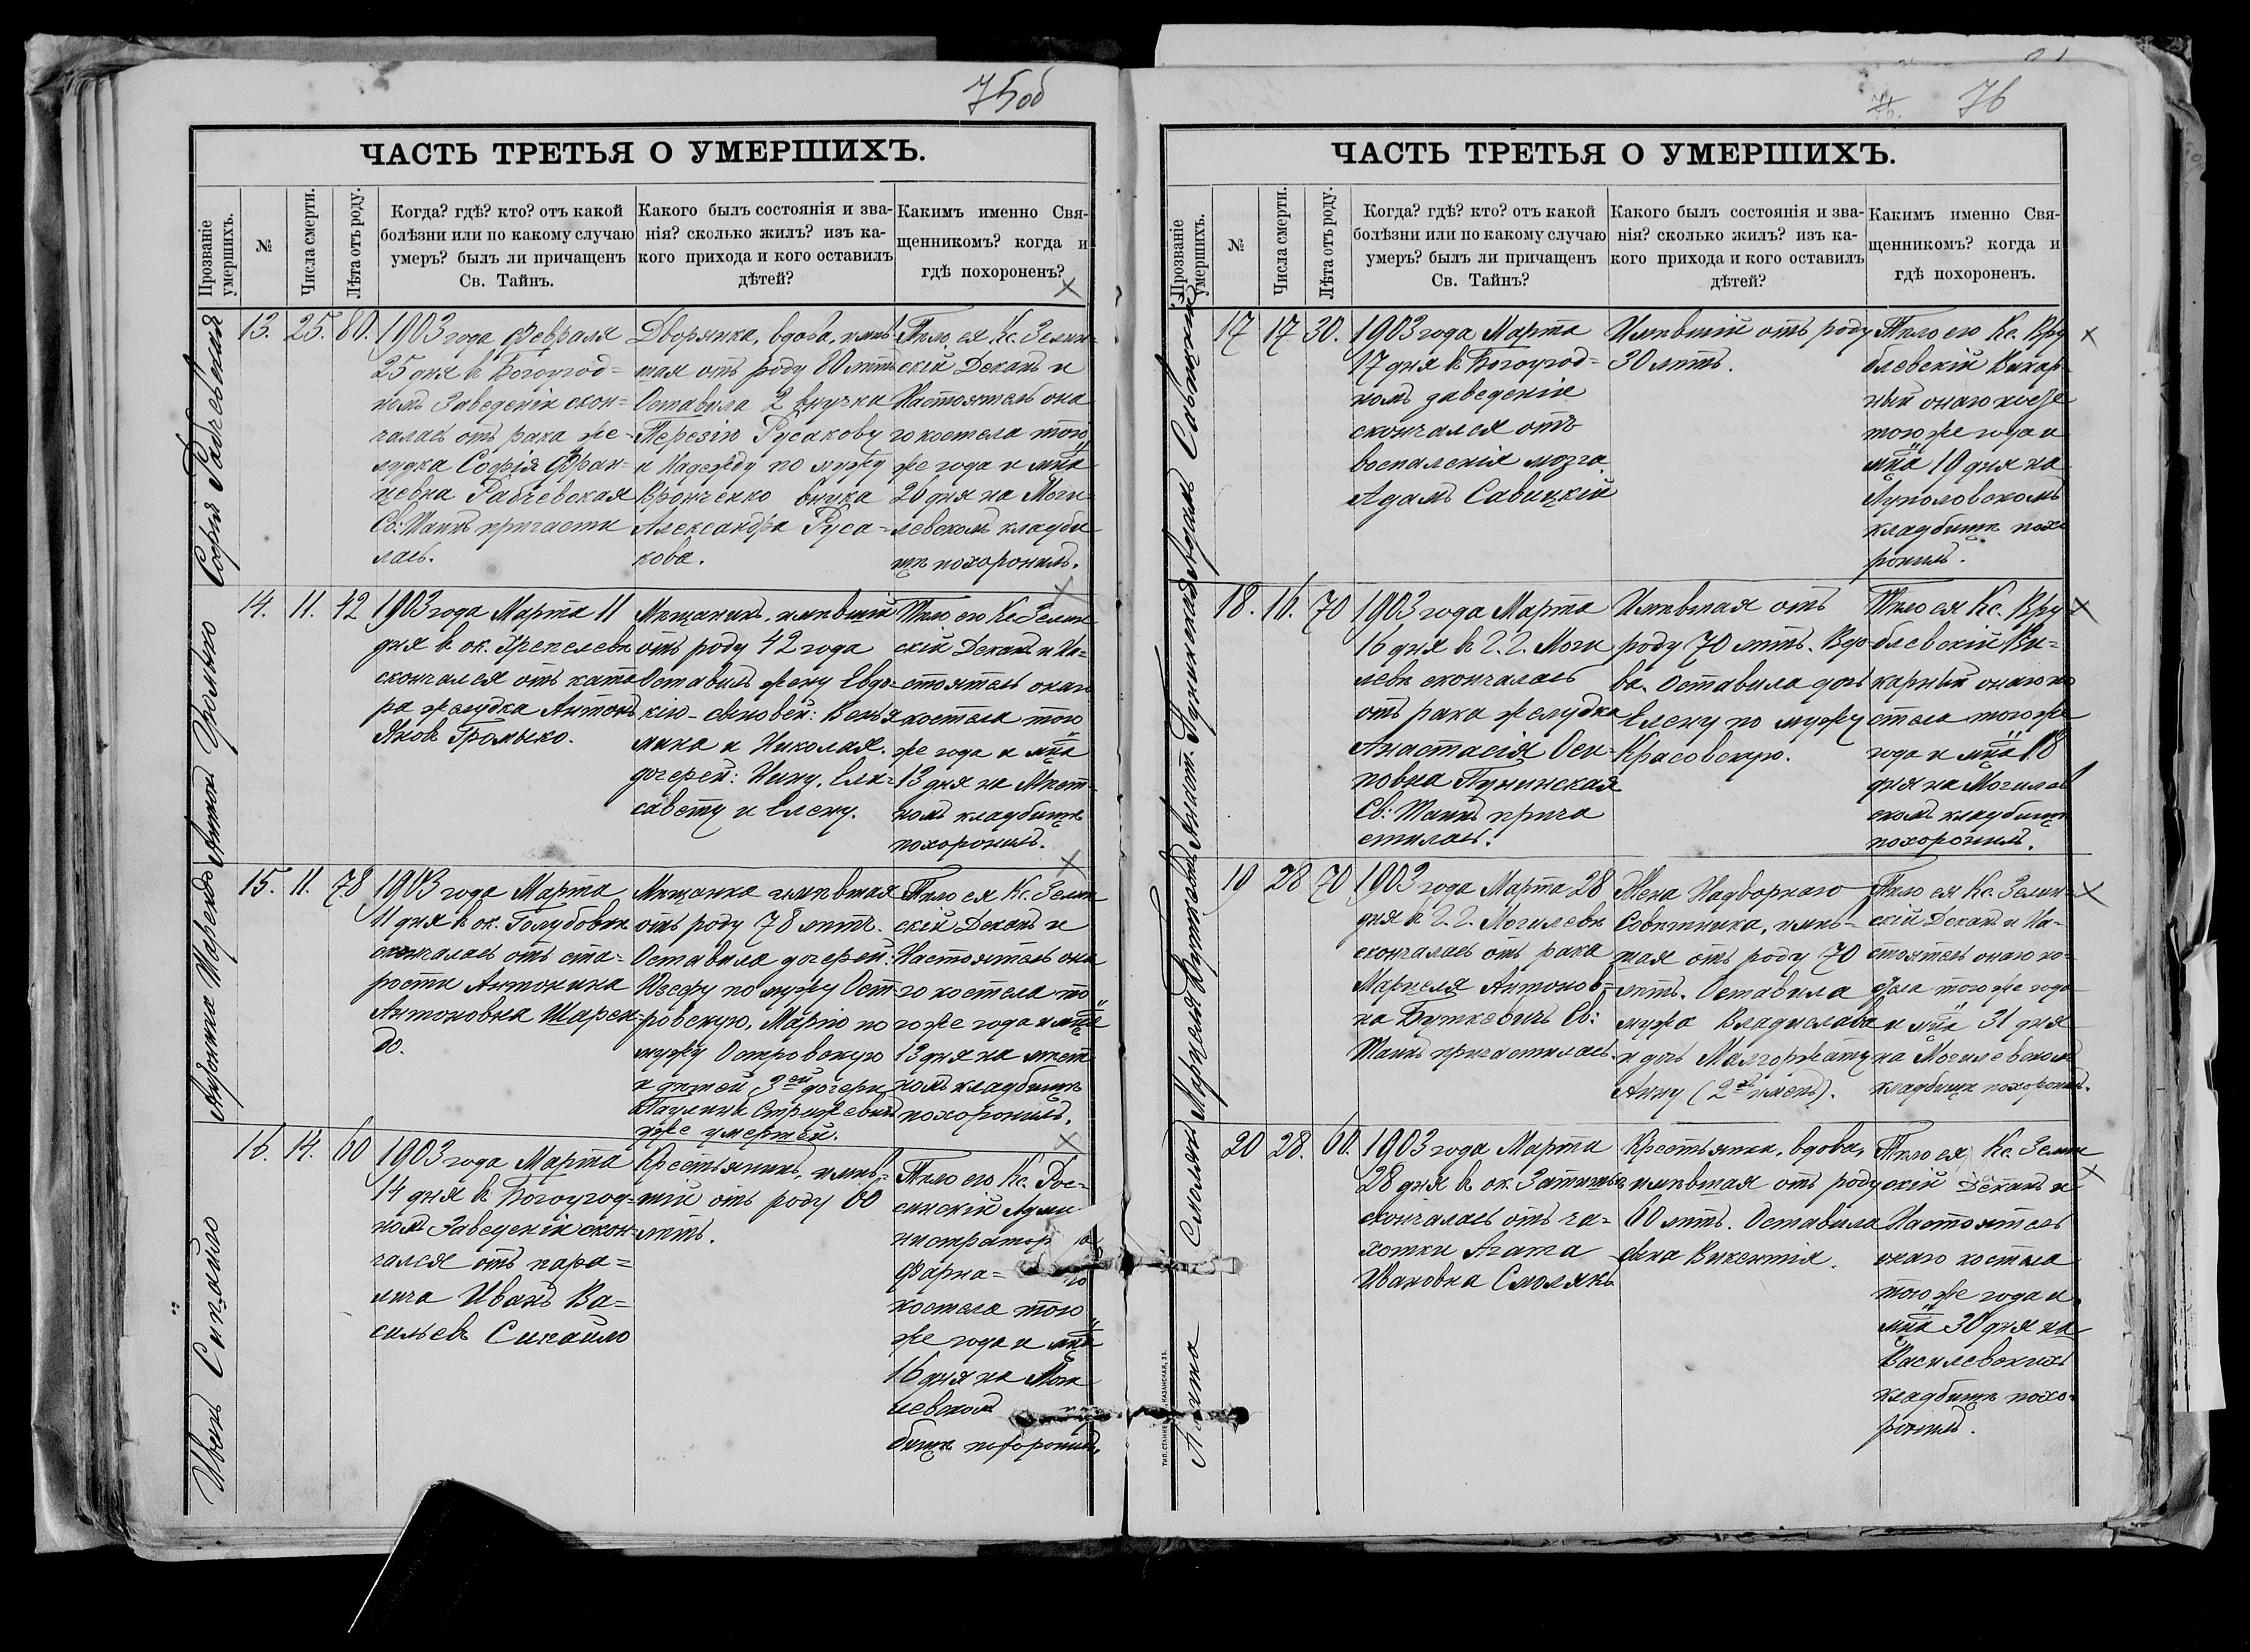 75об
ЧАСТЬ ТРЕТЬЯ О УМЕРШИХЪ.
Прозваніе умершихъ.
№
Числа смерти.
Лѣта отъ роду.
Когда? гдѣ? кто? отъ какой
болѣзни или по какому случаю
умеръ? былъ ли причащенъ
Св. Тайнъ.
Какого былъ состоянія и зва-
нія? сколько жилъ? изъ ка-
кого прихода и кого оставилъ
дѣтей?
Какимъ именно Свя-
щенникомъ? когда и
гдѣ похороненъ?
Софія Рабчевская
13. 25. 80.
1903 года Февраля
25 дня въ Богоугод=
номъ Заведеніи скон=
чалась отъ рака же-
лудка Софія Фран=
цевна Рабчевская
Св: Таинъ причасти
лась.
Дворянка, вдова, имѣв
шая отъ роду 80 лѣтъ
Оставила 2 внучки
Терезію Русакову
и Надежду по мужу
Вронченко внука
Александра Руса=
кова.
Тѣло ея Кс. Зелин=
скій Деканъ и
Настоятель она
го костела того
же года и мца
26 дня на Моги=
левскомъ кладби
щѣ похоронилъ.
Антон Громыко
14. 11. 42
1903 года Марта 11
дня в ок. Хрепелевѣ
скончался отъ ката
ра желудка Антонъ
Яковъ Громыко.
Мѣщанинъ, имѣвшій
отъ роду 42 года
Оставилъ жену Евдо-
кію - сыновей: Венья
мина и Николая.
дочерей: Нину, Ели=
савету и Елену.
Тѣло его Кс. Зелин
скій Деканъ и На=
стоятель онаго
костела того
же года и мца
13 дня на Мѣст=
номъ кладбищѣ
похоронилъ.
Антонина Шарендо
15. 11. 78
1903 года Марта
11 дня в ок. Голубовкѣ
скончалась отъ ста=
рости Антонина
Антоновна Шарен=
до.
Мѣщанка имѣвшая
отъ роду 78 лѣтъ.
Оставила дочерей:
Юзефу по мужу Ост=
ровскую, Марію по
мужу Островскую
и дѣтей 3ей дочери
Паулины Стрижевич
уже умершей.
Тѣло ея Кс. Зелин
скій Деканъ и
Настоятель она
го костела то
го же года и мца
13 дня на мѣст
номъ кладбищѣ
похоронилъ.
Иванъ Сикайло
16. 14. 60
1903 года Марта
14 дня въ Богоугод=
номъ Заведеніи скон=
чался отъ пара=
лича Иванъ Ва=
сильевъ Сикайло
Крестьянинъ, имѣв=
шій отъ роду 60
лѣтъ.
Тѣло его Кс. Рос=
синскій Адми
нистратор
Фарна= го
костела того
же года и мца
16 дня на Моги
левском
бищѣ похоронилъ.
76
ЧАСТЬ ТРЕТЬЯ О УМЕРШИХЪ.
Прозваніе умершихъ.
№
Числа смерти.
Лѣта отъ роду.
Когда? гдѣ? кто? отъ какой
болѣзни или по какому случаю
умеръ? былъ ли причащенъ
Св. Тайнъ?
Какого былъ состоянія и зва-
нія? сколько жилъ? изъ ка-
кого прихода и кого оставилъ
дѣтей?
Какимъ именно Свя-
щенникомъ? когда и
гдѣ похороненъ.
Адамъ Савицкій
17 17 30.
1903 года Марта
17 дня въ Богоугод=
номъ заведеніи
скончался отъ
воспаленія мозга
Адамъ Савицкій
Имѣвшій отъ роду
30 лѣтъ.
Тѣло его Кс. Вру
блевскій Викар
ный онаго косте
того же года и
мца 19 дня на
Луполовскомъ
кладбищѣ похо
ронилъ.
Анаст. Пунинская
18. 16. 70
1903 года Марта
16 дня въ Г. Г. Моги
левѣ скончалась
отъ рака желудка
Анастасія Оси=
повна Пунинская
Св: Таинъ прича
стилась.
Имѣвшая отъ
роду 70 лѣтъ. Вдо
ва. Оставила дочь
Елену по мужу
Красовскую.
Тѣло ея Кс. Вру
блевскій Ви=
карный онаго ко
стела того же
года и мца 18
дня на Могилев
скомъ кладбищѣ
похоронилъ.
Марцеля Буткевичъ
19 28 70
1903 года Марта 28
дня в Г. Г. Могилевѣ
скончалась отъ рака
Марцеля Антонов=
на Буткевичъ Св:
Таинъ причастилась.
Жена Надворнаго
Совѣтника, имѣв=
шая отъ роду 70
лѣтъ. Оставила
мужа Владислава
и дочь Малгоржату
Анну (2хъ именъ).
Тѣло ея Кс. Зелин=
скій Деканъ и На-
стоятель онаго ко=
стела того же года
и мца 31 дня
на Могилевскомъ
кладбищѣ похоронилъ.
Агата Смолякъ
20 28. 60.
1903 года Марта
28 дня в ок. Затишьѣ
скончалась отъ ча=
хотки Агата
Ивановна Смолякъ
Крестьянка, вдова,
имѣвшая отъ роду
60 лѣтъ. Оставила
сына Викентія.
Тѣло ея Кс. Зелин
скій Деканъ и
Настоятель
онаго костела
того же года и
мца 30 дня на
Василевскихъ
кладбищѣ похо=
ронилъ.